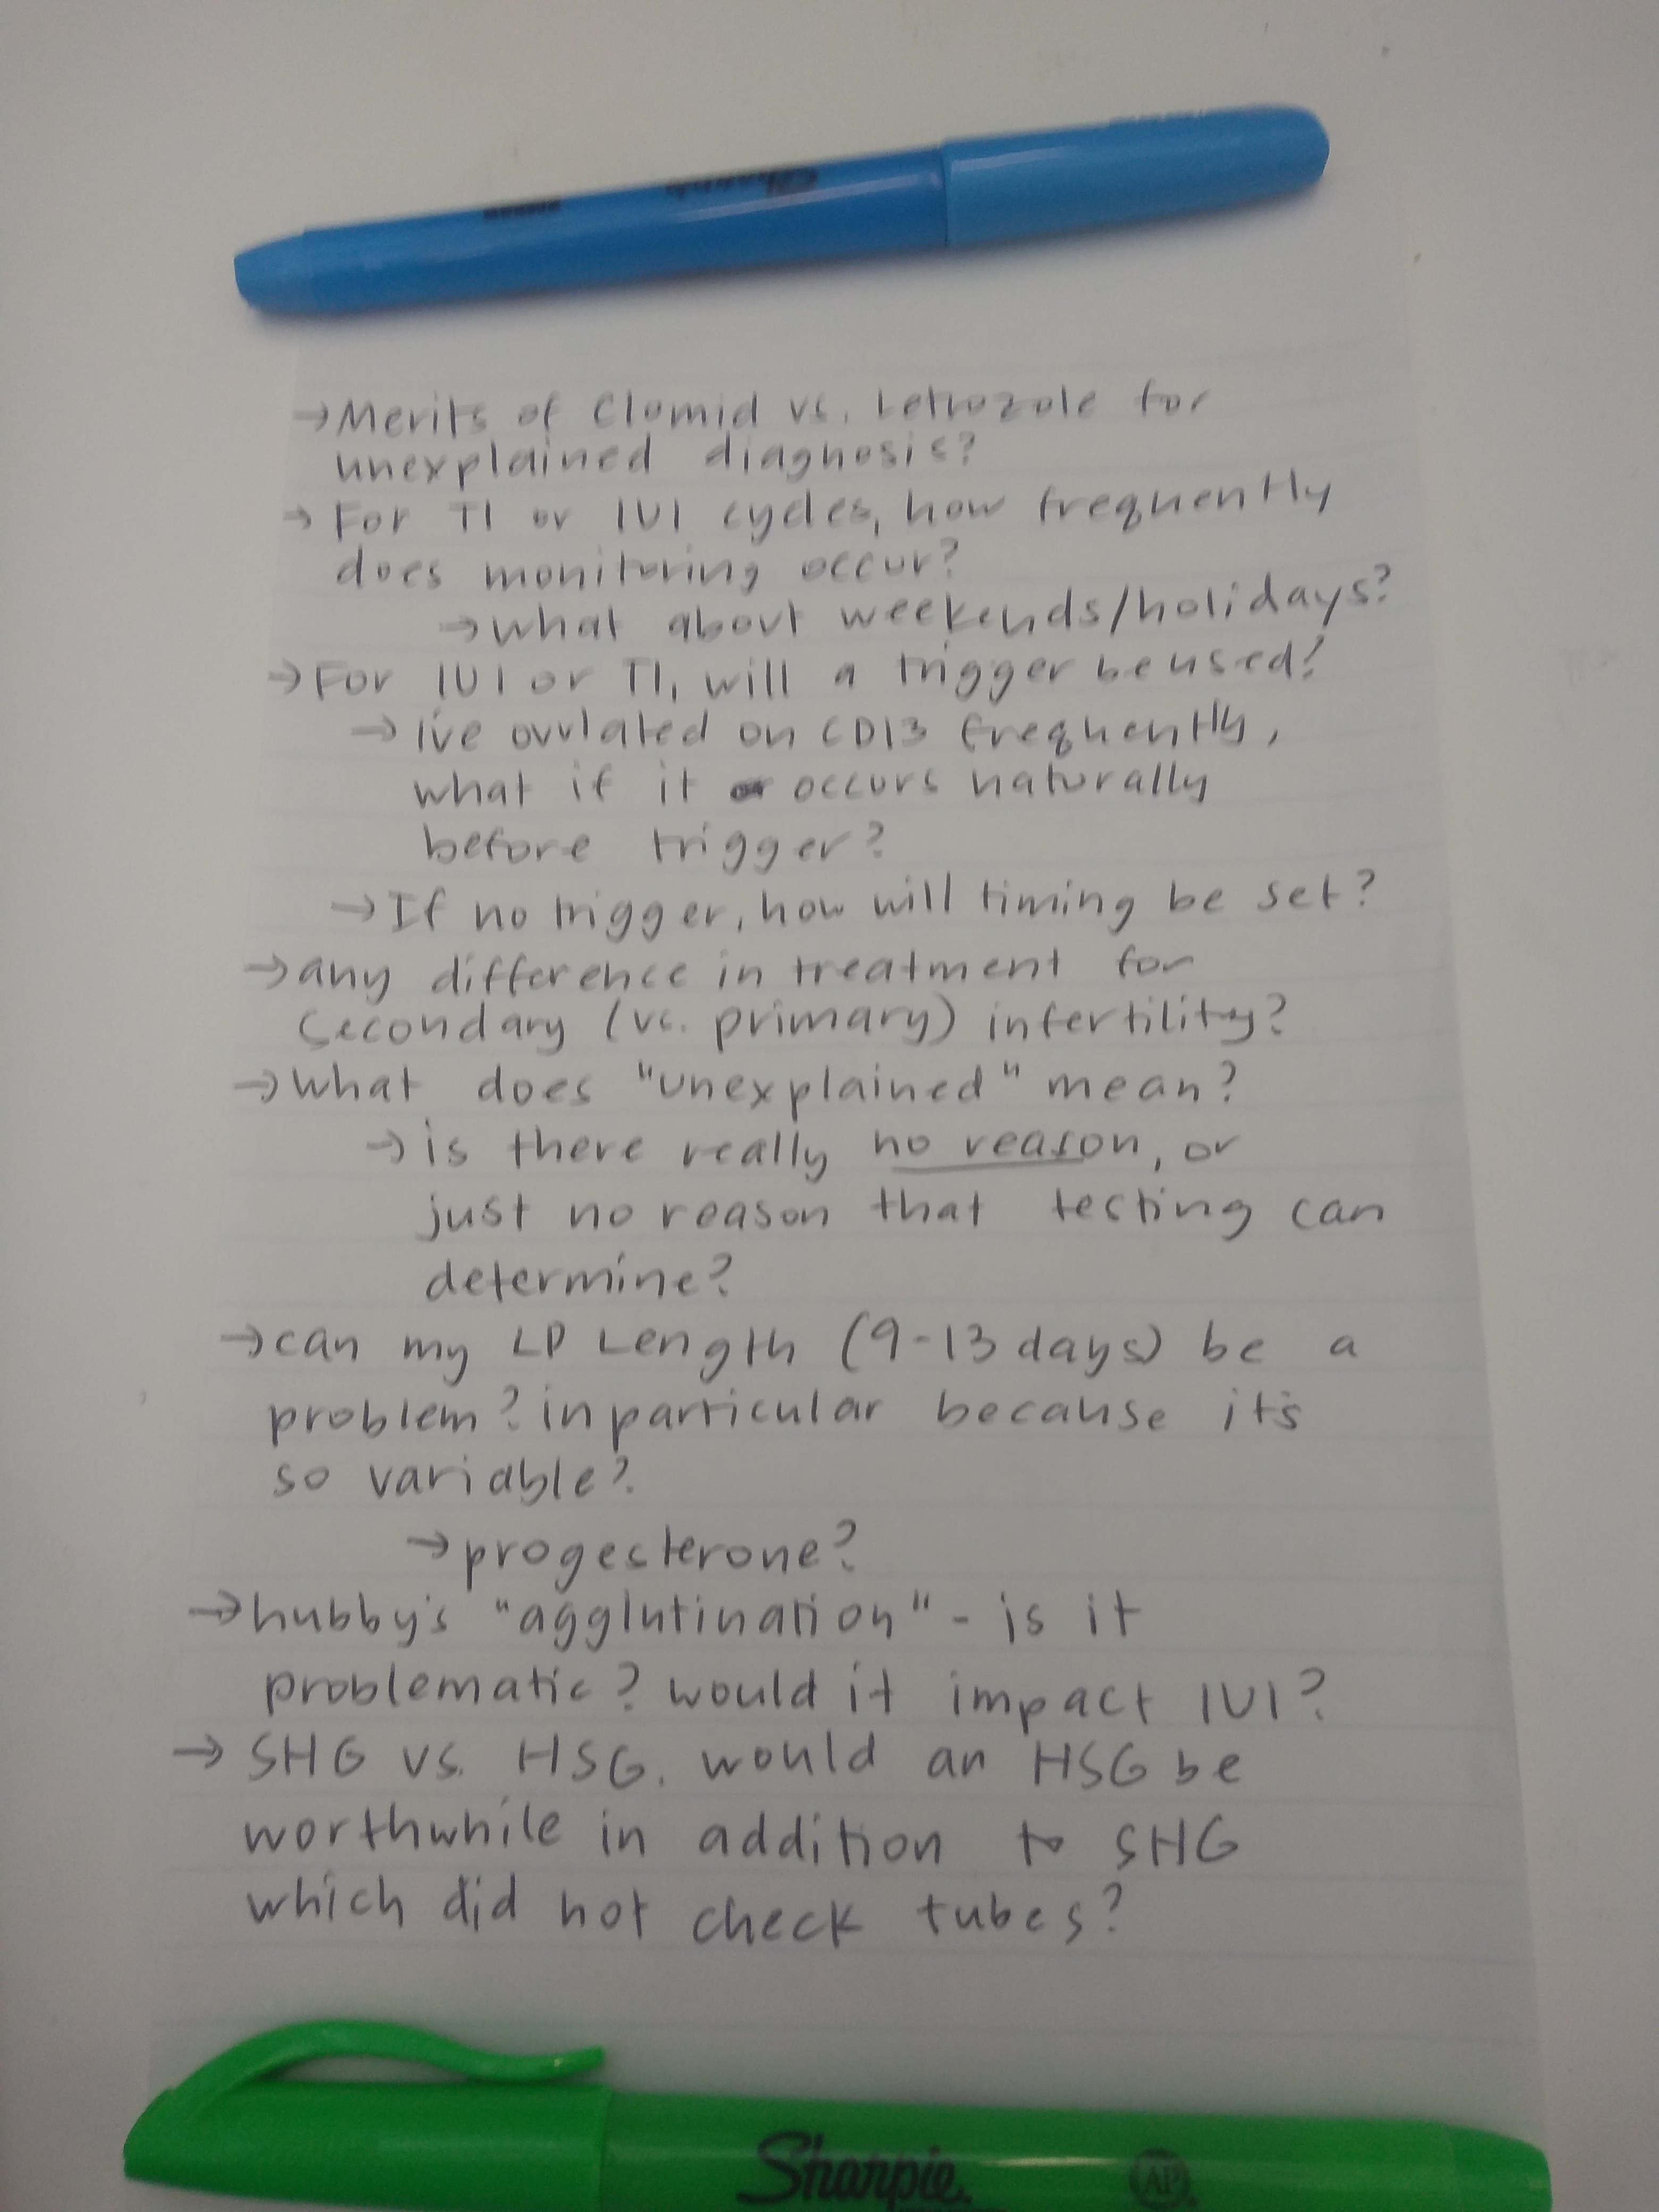 →Merits of Clomid vs. Letrozole for
unexplained diagnosis?
→For TI or IUI cycles, how frequently
does monitoring occur?
→what about weekends/holidays?
→For IUI or TI, will a trigger be used?
→ I've ovulated on CD13 frequently,
what if it occurs naturally
before trigger?
→If no trigger, how will timing be set?
→any difference in treatment for
secondary (vs. primary) infertility?
→what does "unexplained" mean?
→is there really no reason, or
just no reason that testing can
determine?
→can my LP Length (9-13 days) be a
problem? in particular because it's
so variable?
→progesterone?
→hubby's "agglutination" - is it
problematic? would it impact IUI?
→ SHG vs. HSG. would an HSG be
worthwhile in addition to SHG
which did not check tubes?
Sharpie
AP